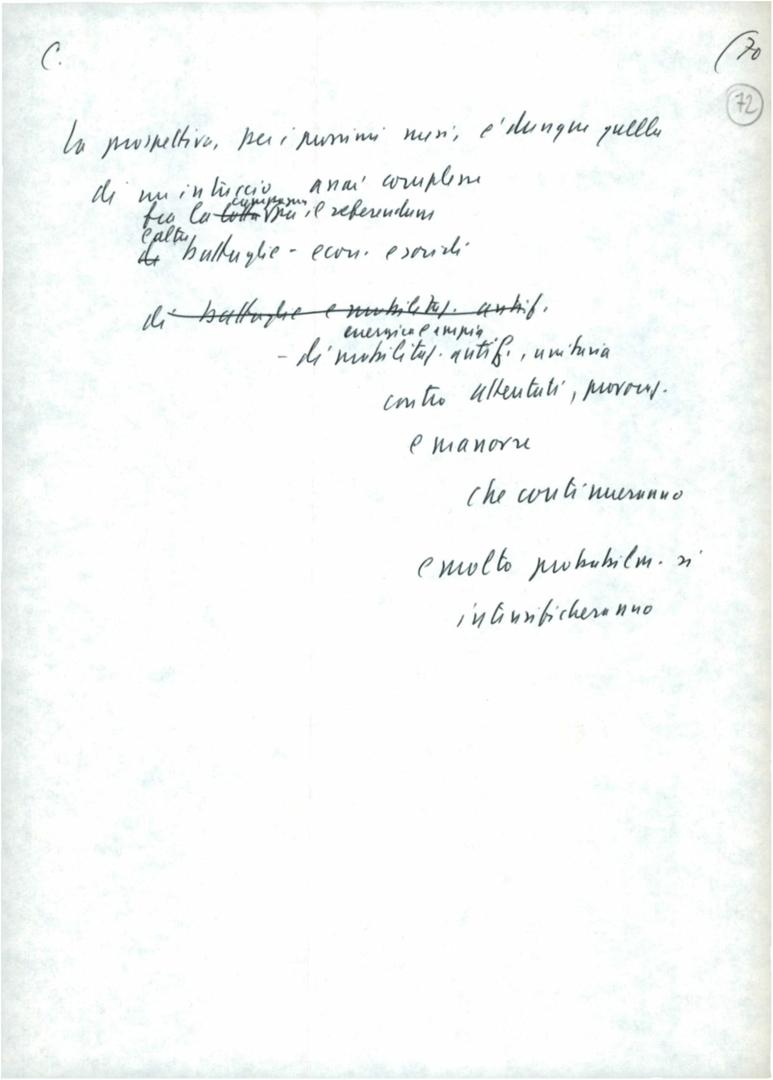 C.
(70
72
La prospettiva, per i prossimi mesi, è dunque quella
di un intreccio assai complesso
campagna
tra la lotta il referendum
e altre
di battaglie - econ. e sociali
di battaglie e mobilitaz. antif.
energica e ampia
- di mobilitaz. antif., unitaria
contro attentati, provocaz.
e manovre
che continueranno
e molto probabilm. si
intensificheranno